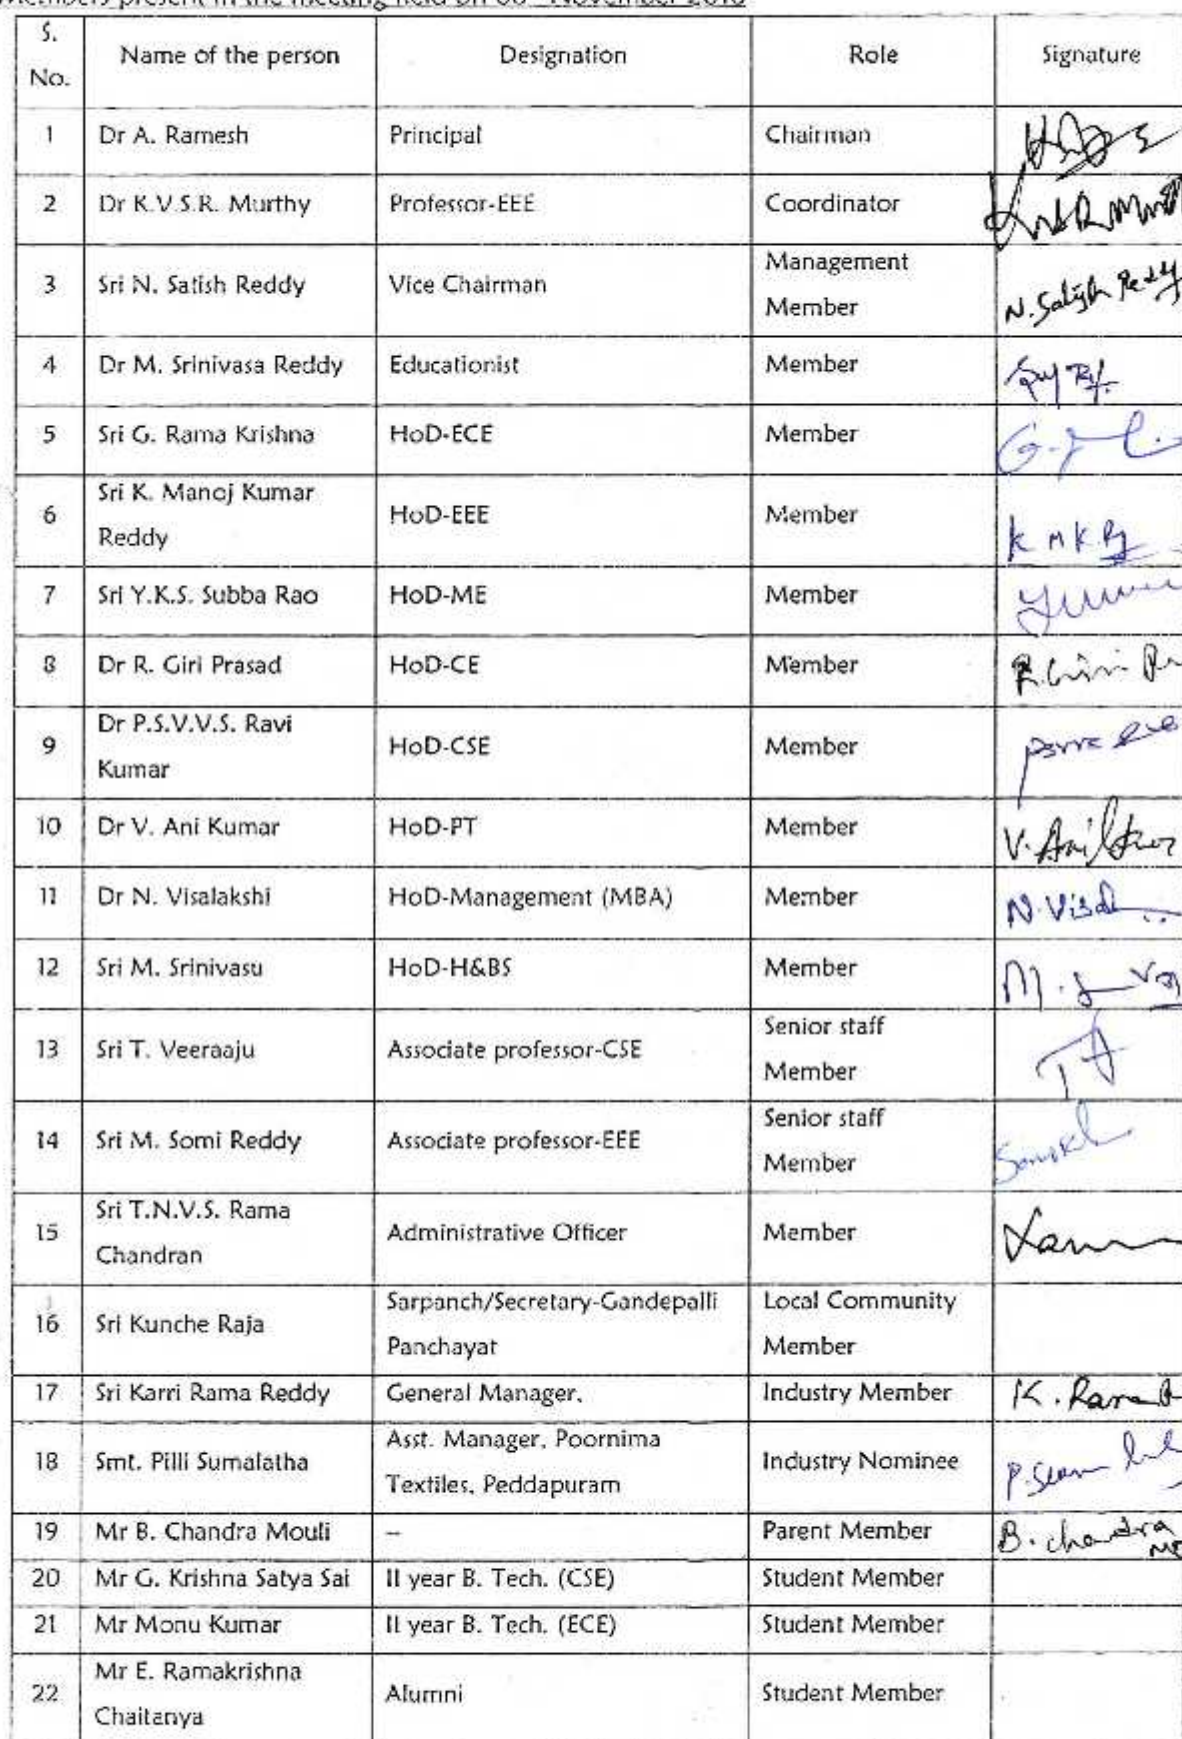 Members present in the meeting held on November
S. No. Name of the person Designation Role Signature
1 Dr A. Ramesh Principal Chairman
2 Dr K.V.S.R. Murthy Professor-EEE Coordinator
3 Sri N. Satish Reddy Vice Chairman Management Member N. Satish Reddy
4 Dr M. Srinivasa Reddy Educationist Member
5 Sri G. Rama Krishna HoD-ECE Member
6 Sri K. Manoj Kumar Reddy HoD-EEE Member
7 Sri Y.K.S. Subba Rao HoD-ME Member
8 Dr R. Giri Prasad HoD-CE Member
9 Dr P.S.V.V.S. Ravi Kumar HoD-CSE Member
10 Dr V. Ani Kumar HoD-PT Member
11 Dr N. Visalakshi HoD-Management (MBA) Member
12 Sri M. Srinivasu HoD-H&BS Member
13 Sri T. Veeraaju Associate professor-CSE Senior staff Member
14 Sri M. Somi Reddy Associate professor-EEE Senior staff Member
15 Sri T.N.V.S. Rama Chandran Administrative Officer Member
16 Sri Kunche Raja Sarpanch/Secretary-Gandepalli Panchayat Local Community Member
17 Sri Karri Rama Reddy General Manager, Industry Member
18 Smt. Pilli Sumalatha Asst. Manager, Poornima Textiles, Peddapuram Industry Nominee
19 Mr B. Chandra Mouli – Parent Member B. chandra
20 Mr G. Krishna Satya Sai II year B. Tech. (CSE) Student Member
21 Mr Monu Kumar II year B. Tech. (ECE) Student Member
22 Mr E. Ramakrishna Chaitanya Alumni Student Member